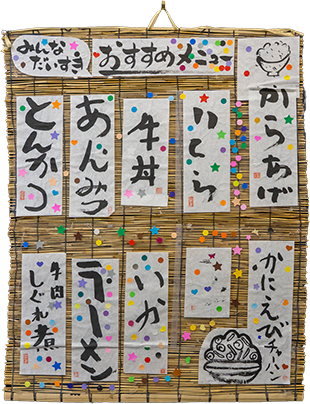 みんな
だいすき
おすすめメニュー
からあげ
いくら
牛丼
あんみつ
とんかつ
かにえびチャーハン
いか
ラーメン
牛肉
しぐれ煮